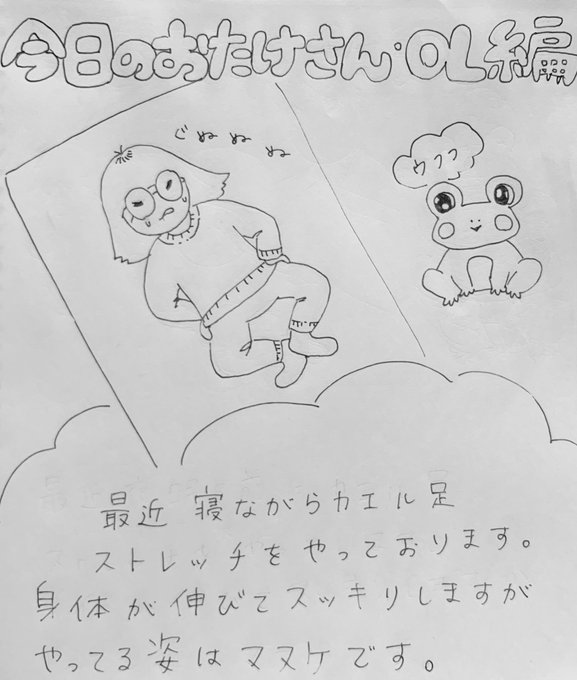 今日のおたけさん・OL編
ぐぬぬぬ
ウフフ
最近 寝ながらカエル足
ストレッチをやっております。
身体が伸びてスッキリしますが
やってる姿はマヌケです。